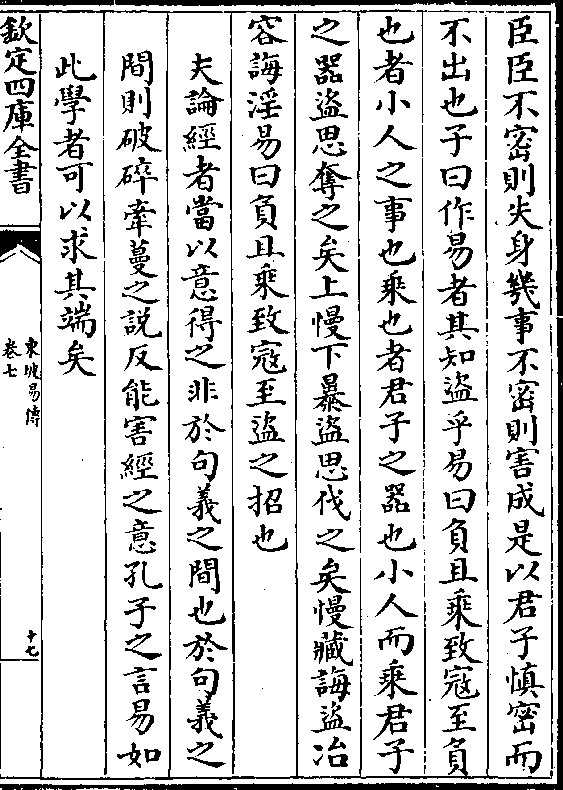 臣臣不密則失身幾事不密則害成是以君子慎密而
不出也子曰作易者其知盜乎易曰負且乘致寇至負
也者小人之事也乘也者君子之器也小人而乘君子
之器盜思奪之矣上慢下暴盜思伐之矣慢藏誨盜冶
容誨淫易曰負且乘致寇至盜之招也
夫論經者當以意得之非於句義之間也於句義之
間則破碎牽蔓之說反能害經之意孔子之言易如
此學者可以求其端矣
欽定四庫全書
東坡易傳
卷七
十七